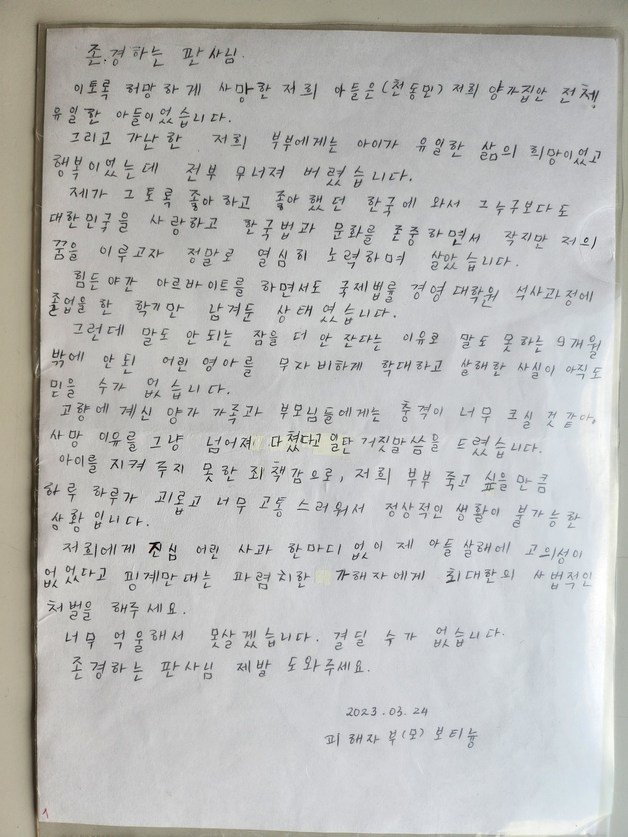 존경하는 판사님.
이토록 허망하게 사망한 저희 아들은(천동민) 저희 양가집안 전체,
유일한 아들이었습니다.
그리고 가난한 저희 부부에게는 아이가 유일한 삶의 희망이었고
행복이었는데 전부 무너져 버렸습니다.
제가 그토록 좋아하고 좋아했던 한국에 와서 그누구보다도
대한민국을 사랑하고 한국법과 문화를 존중하면서 작지만 저의
꿈을 이루고자 정말로 열심히 노력하며 살았습니다.
힘든야간 아르바이트를 하면서도 국제법률 경영대학원 석사과정에
졸업을 한 학기만 남겨둔 상태였습니다.
그런데 말도 안되는 잠을 더 안 잔다는 이유로 말도 못하는 9개월
밖에 안된 어린 영아를 무자비하게 학대하고 살해한 사실이 아직도
믿을 수가 없습니다.
고향에 계신 양가 가족과 부모님들에게는 충격이 너무 크실 것 같아,
사망 이유를 그냥 넘어져 다쳤다고 일단 거짓말씀을 드렸습니다.
아이를 지켜 주지 못한 죄책감으로, 저희 부부 죽고 싶을만큼
하루 하루가 괴롭고 너무 고통스러워서 정상적인 생활이 불가능한
상황입니다.
저희에게 진심 어린 사과 한마디 없이 제 아들살해에 고의성이
없었다고 핑계만대는 파렴치한 가해자에게 최대한의 사법적인
처벌을 해주세요.
너무 억울해서 못살겠습니다. 견딜 수가 없습니다.
존경하는 판사님 제발 도와주세요.
2023.03.24
피해자부(모) 보티늉
1